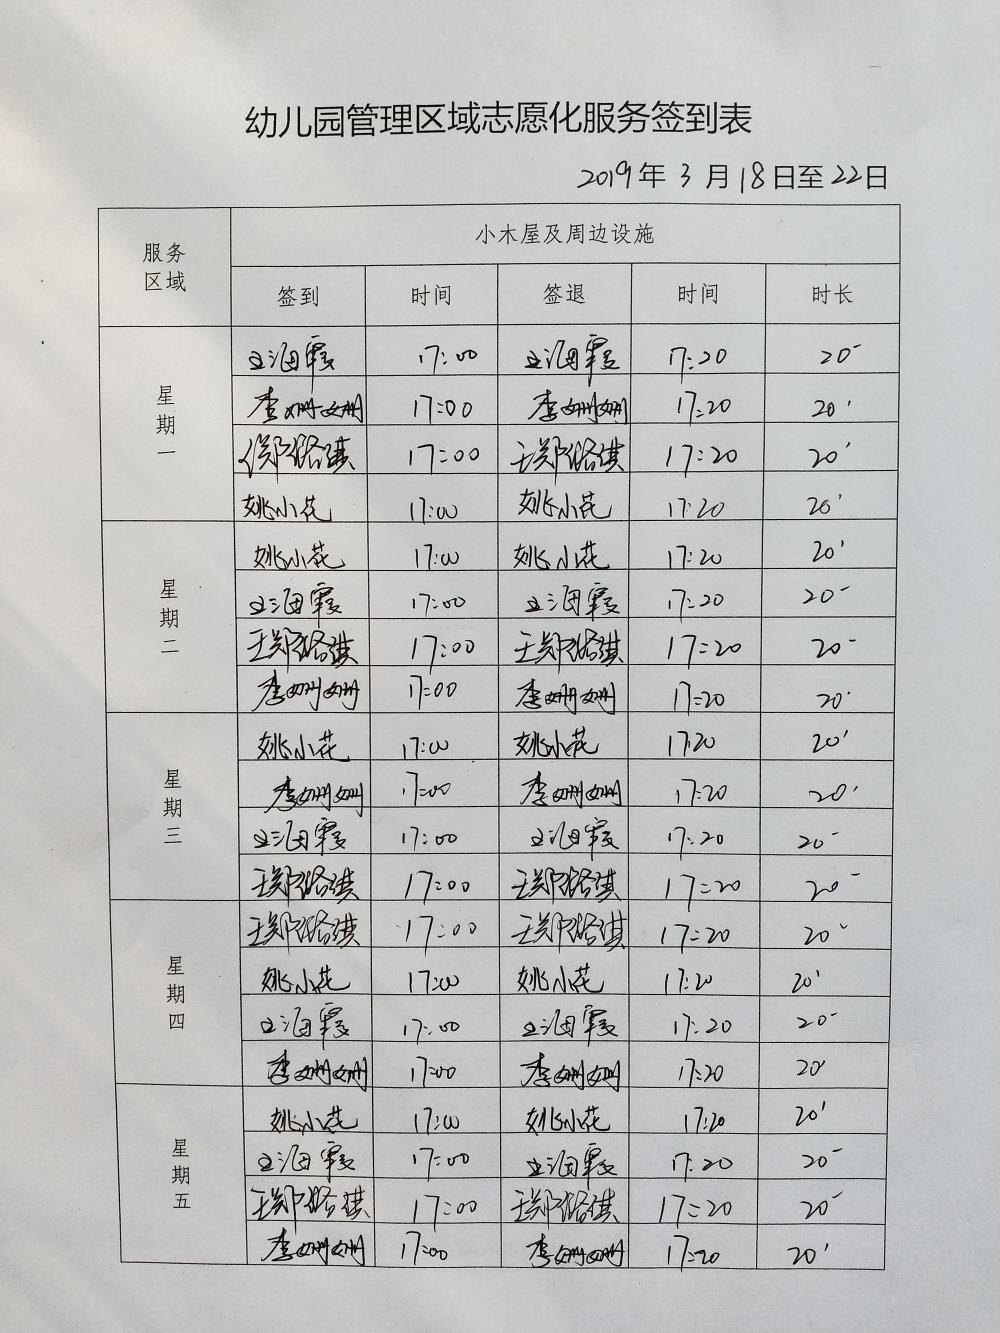 幼儿园管理区域志愿化服务签到表
2019年 3 月 18日至 22日
服务区域 小木屋及周边设施
签到 时间 签退 时间 时长
星期一
王海霞 17:00 王海霞 17:20 20'
李姗姗 17:00 李姗姗 17:20 20'
郑璐琪 17:00 王郑璐琪 17:20 20'
姚小花 17:00 姚小花 17:20 20'
星期二
姚小花 17:00 姚小花 17:20 20'
王海霞 17:00 王海霞 17:20 20'
王郑璐琪 17:00 王郑璐琪 17:20 20'
李姗姗 17:00 李姗姗 17:20 20'
星期三
姚小花 17:00 姚小花 17:20 20'
李姗姗 17:00 李姗姗 17:20 20'
王海霞 17:00 王海霞 17:20 20'
王郑璐琪 17:00 王郑璐琪 17:20 20'
星期四
王郑璐琪 17:00 王郑璐琪 17:20 20'
姚小花 17:00 姚小花 17:20 20'
王海霞 17:00 王海霞 17:20 20'
李姗姗 17:00 李姗姗 17:20 20'
星期五
姚小花 17:00 姚小花 17:20 20'
王海霞 17:00 王海霞 17:20 20'
王郑璐琪 17:00 王郑璐琪 17:20 20'
李姗姗 17:00 李姗姗 17:20 20'